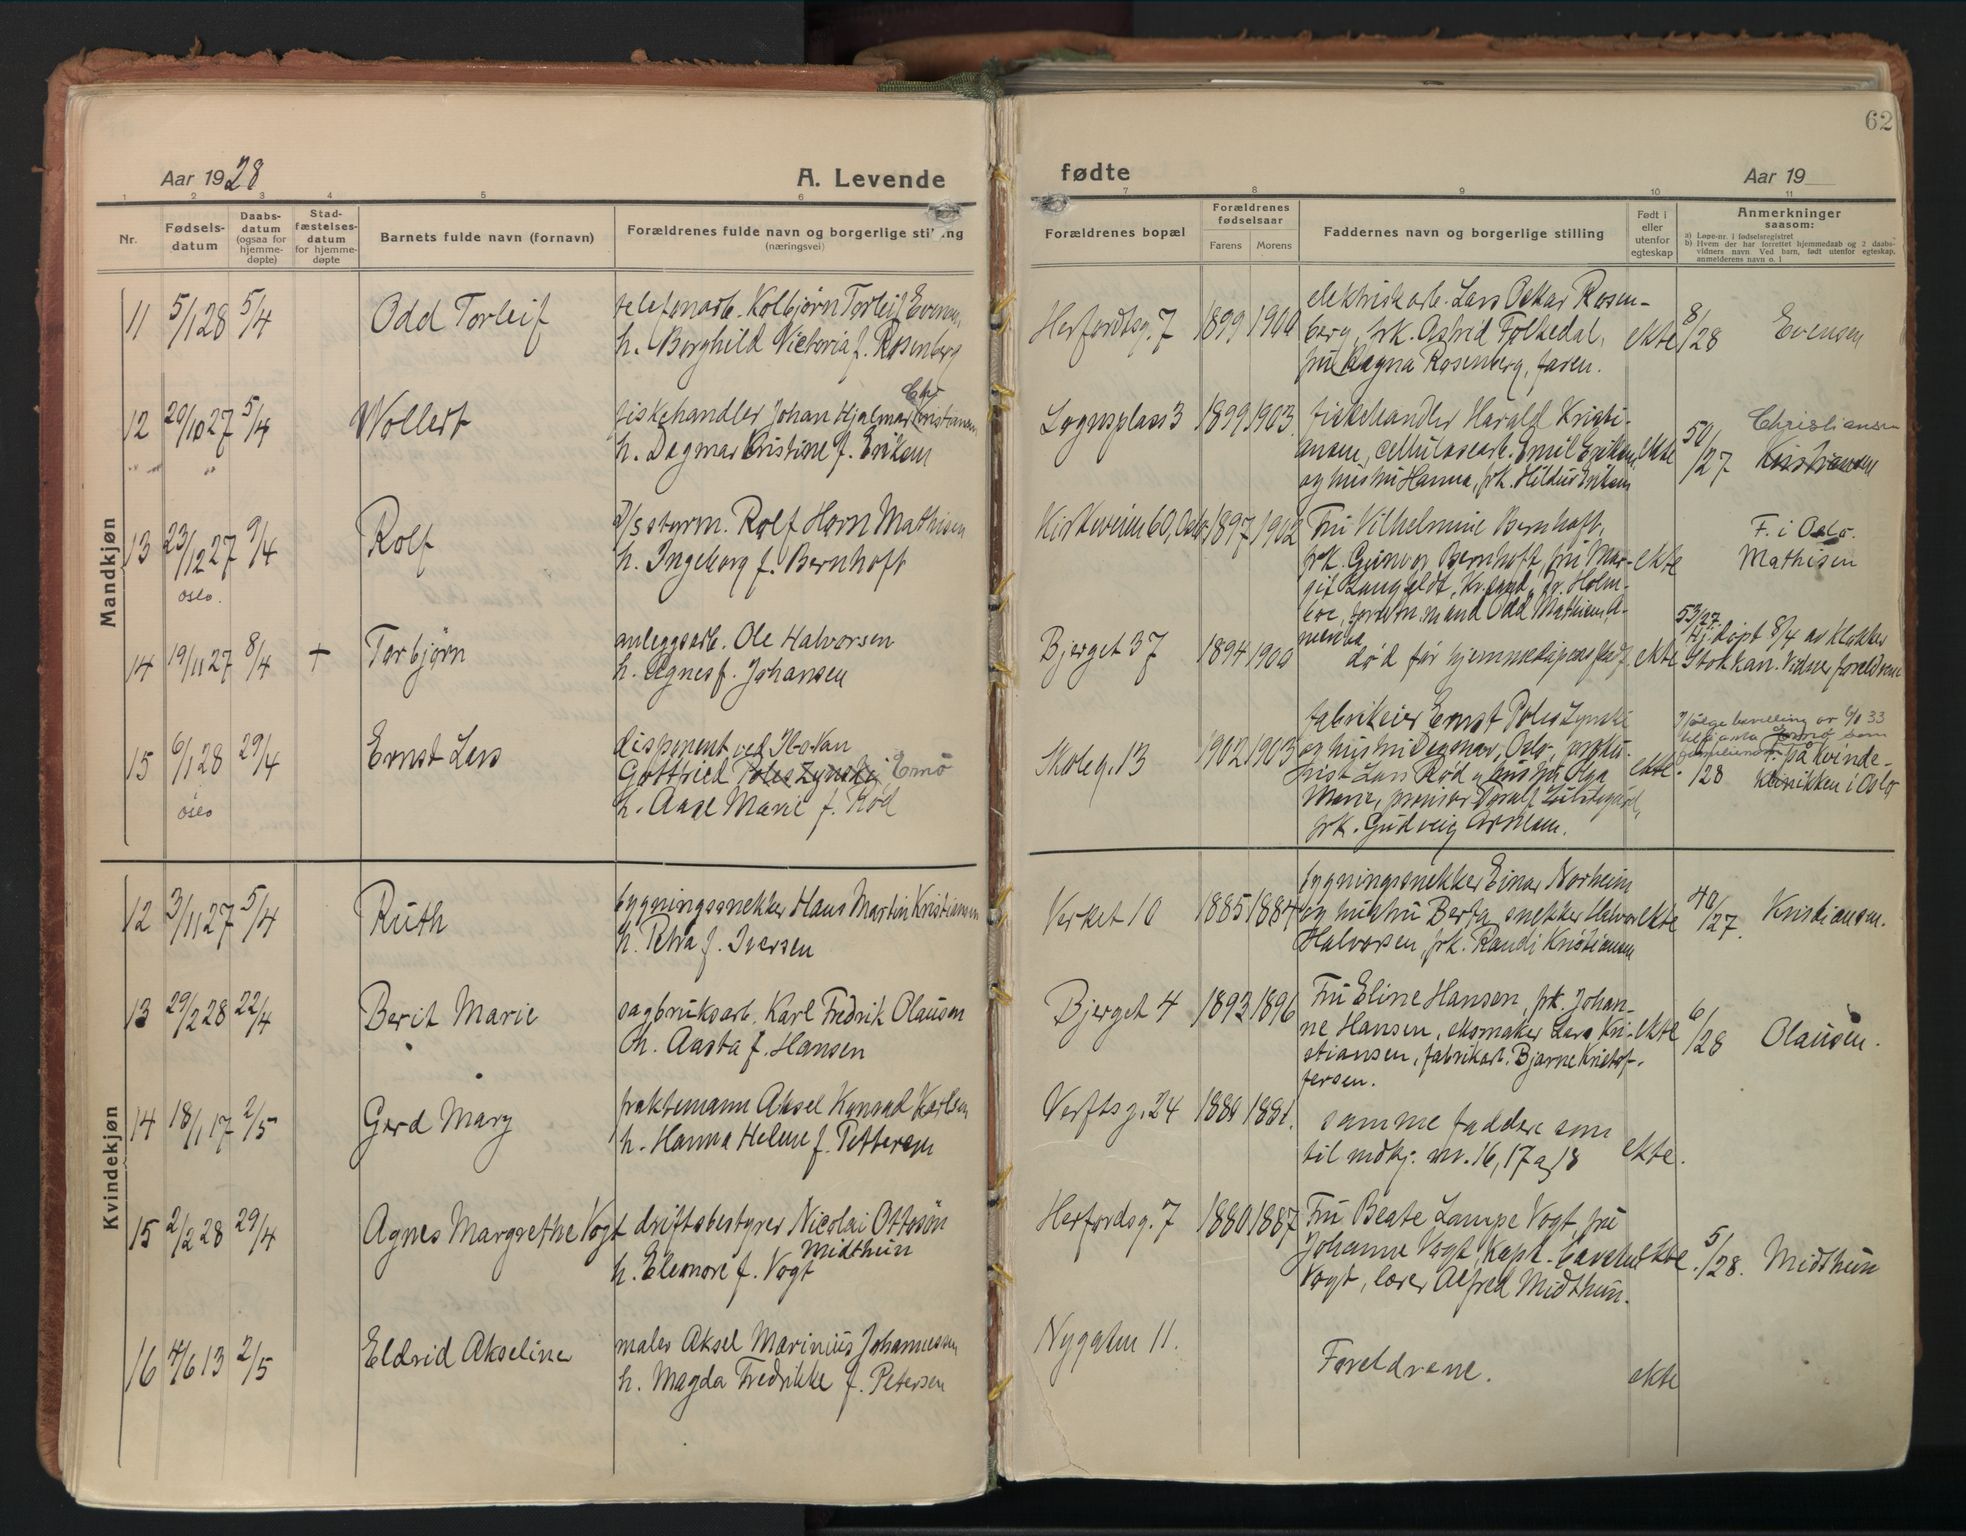 62
Aar 1928
A. Levende
fødte
Aar 19
1 2 3 4 5 6 7 8 9 10 11
Nr.
Fødsels-
datum
Daabs-
datum
(ogsaa for
hjemme-
døpte)
Stad-
fæstelses-
datum
for hjemme-
døpte
Barnets fulde navn (fornavn)
Forældrenes fulde navn og borgerlige stilling
(næringsvei)
Forældrenes bopæl
Forældrenes
fødselsaar
Farens
Morens
Faddernes navn og borgerlige stilling
Født i
eller
utenfor
egteskap
Anmerkninger
saasom:
a) Løpe-nr. i fødselsregistret
b) Hvem der har forrettet hjemmedaab og 2 daabs-
vidners navn. Ved barn, født utenfor egteskap,
anmelderens navn o. l.
Mandkjøn
11 5/1 28 5/4 Odd Torleif
telefonarb. Kolbjørn Torleif Evensen
h. Borghild Victoria f. Rosenberg
Herfordtsg. 7 1899 1900
elektriskarb. Lars Oskar Rosen-
berg, frk. Astrid Folkedal,
fru Magna Rosenberg, faren.
ekte 8/28 Evensen
12 29/10 27 5/4 Vollert
fiskehandler Johan Hjalmar Kristiansen
Chr
h. Dagmar Kristine f. Eriksen
Lognsplass 3 1899 1903
fiskehandler Harald Kristi-
ansen, cellulosearb. Emil Eriksen
og hustru Hanna, frk. Hildur Eriksen
ekte 50/27 Christiansen
Kristiansen
13 23/12 27 9/4 Rolf
oslo.
styrm. Rolf Horn Mathisen
h. Ingeborg f. Bernhoft
Kirkeveien 60, Oslo 1897 1902
Fru Vilhelmine Bernhoft,
frk. Gunvor Bernhoft, fru Mar-
git Langfeldt, Kr.sand, dr. Holm-
boe, mand Odd Mathisen, A-
merika
ekte F. i Oslo.
Mathisen
14 19/11 27 8/4 + Torbjørn
anleggsarb. Ole Halvorsen
h. Agnes f. Johansen
Bjerget 37 1894 1900
død før hjemmedåpens stadf.
ekte 53/27
Hj. døpt 8/4 av klokker
Stokkan. Vidner foreldrene
15 6/1 28 29/4 Ernst Lars
oslo
disponent ved
Gottfried Poleszynski Ernö
h. Aase Marie f. Rød
Skoleg. 13 1902 1903
fabrikeier Ernst Poleszynski
og hustru Dagmar, Oslo, proku-
rist Lars Rød og hustru Olga
Marie, provisor
frk. Gudveig
ekte. Ifølge bevilling av 6/8 33
/28 F. på Kvinde-
klinikken i Oslo
Kvindekjøn
12 3/11 27 5/4 Ruth
bygningssnekker Hans Martin Kristiansen
h. Petra f. Iversen
Verket 10 1885 1884
bygningssnekker Einar Norheim
og hustru Berta, snekker Halvor
Halvorsen, frk. Randi Kristiansen
ekte 40/27. Kristiansen.
13 29/2 28 22/4 Berit Marie
sagbruksarb. Karl Fredrik Olausen
h. Aasta f. Hansen
Bjerget 4 1893 1896
Fru Eline Hansen, frk. Johan-
ne Hansen, eksmaker Lars Kri-
stiansen, fabrikarb. Bjarne Kristof-
fersen.
ekte 6/28 Olausen.
14 18/1 17 2/5 Gerd Mary
fraktemann Aksel Konrad Karlsen
h. Hanna Helene f. Pettersen
Verftsg. 24 1880 1881.
samme faddere som
til mdkj. nr. 16, 17 og 18
ekte.
15 2/2 28 29/4 Agnes Margrethe Vogt
driftsbestyrer Nicolai Ottosön
Midthun
h. Eleonore f. Vogt
Herfordsg. 7 1880 1887
Fru Beate Lampe Vogt, fru
Johanne Vogt, Kapt.
Vogt, lærer Alfred Midthun.
ekte. 5/28. Midthun
16 4/6 13 2/5 Eldrid Akseline
maler Aksel Marinius Johannessen
h. Magda Fredrikke f. Petersen
Nygaten 11.
Foreldrene.
ekte